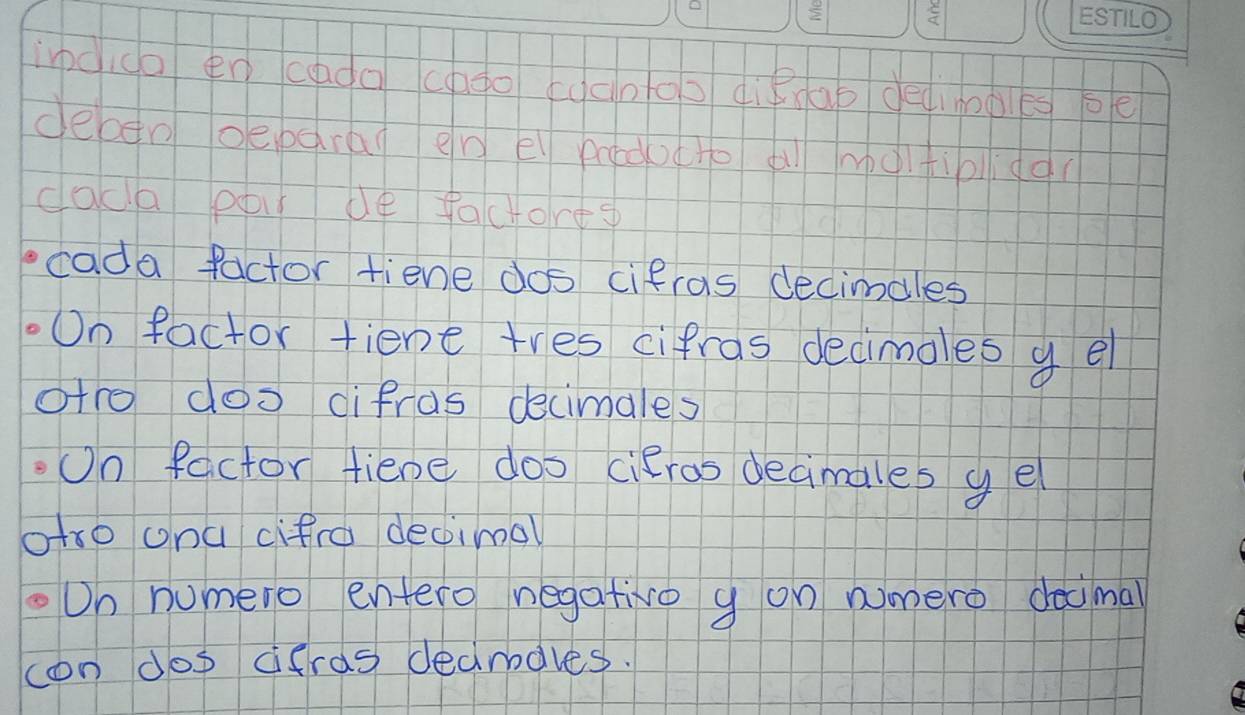 ESTILO
indica en cada caso cuantas cifras decimales se
deben separar en el producto al moltiplicar
cada par de factores
•cada factor tiene dos cifras decimales
•Un factor tiene tres cifras decimales y el
otro dos cifras decimales
•Un factor tiene dos cifras decimales y el
otro una cifra decimal
•Un numero entero negativo y un numero decimal
con dos cifras decimales.